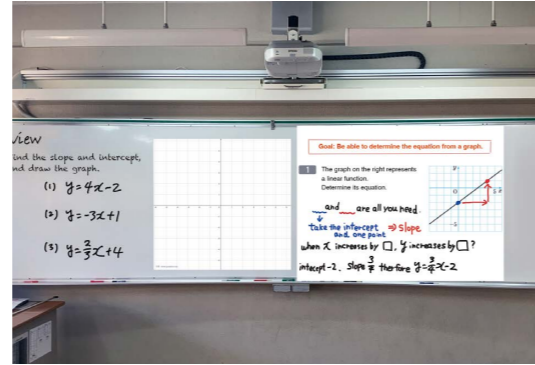 view
ind the slope and intercept,
nd draw the graph.
(1) y=4x-2
(2) y=-3x+1
(3) y=2/3x+4
Goal: Be able to determine the equation from a graph.
1 The graph on the right represents
a linear function.
Determine its equation.
and are all you need.
take the intercept ⇒ Slope
and one point
when x increases by □, y increases by □?
intecept-2, slope 3/4 therfore y=3/4x-2
y
O 5 x
-5